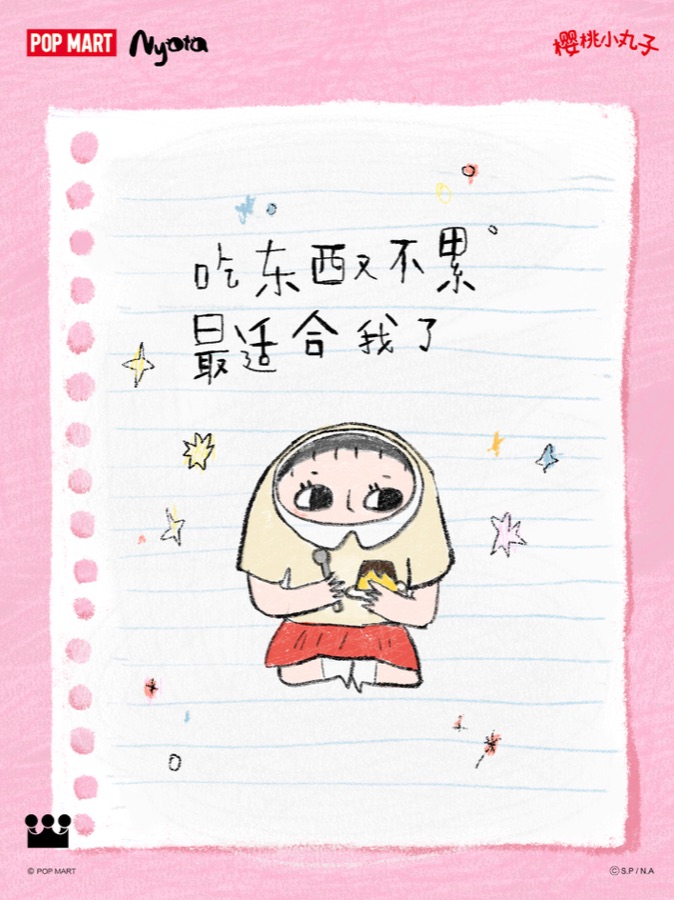 POP MART Nyota 樱桃小丸子
吃东西又不累
最适合我了
© POP MART
© S.P / N.A